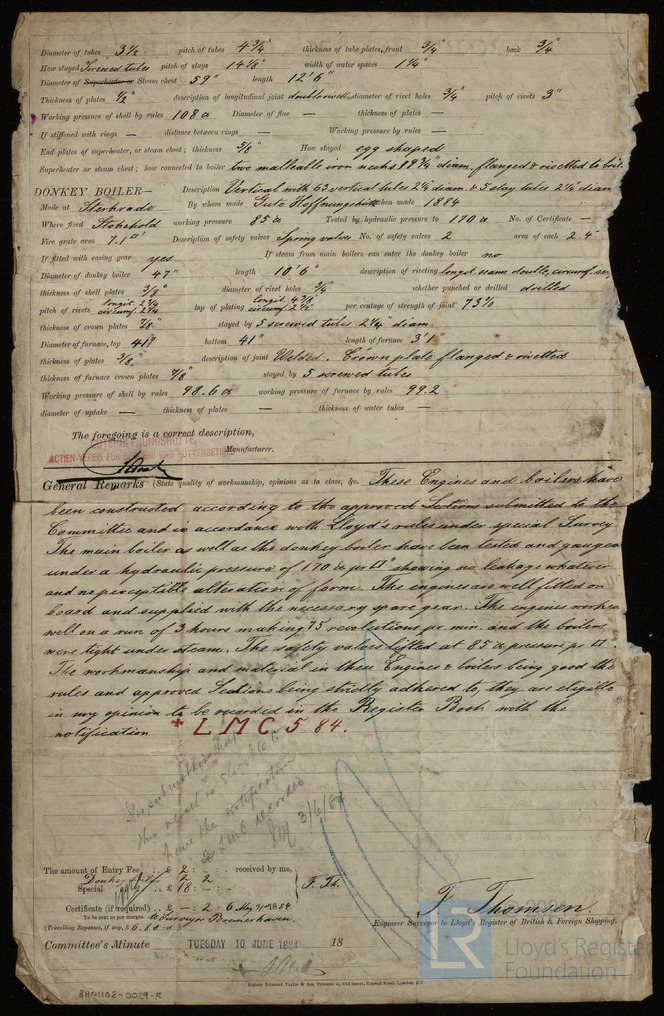 Diameter of tubes 3½ pitch of tubes 4¾" thickness of tube plates, front ¾" back ¾"
How stayed Screwed tubes pitch of stays 14½" width of water spaces 1¼"
Diameter of Superheater or Steam chest 59" length 12'6"
Thickness of plates ½" description of longitudinal joint double rivetted diameter of rivet holes ¾" pitch of rivets 3"
Working pressure of shell by rules 108 Diameter of flue — thickness of plates —
If stiffened with rings — distance between rings — Working pressure by rules —
End plates of superheater, or steam chest; thickness 5/8" How stayed egg shaped
Superheater or steam chest; how connected to boiler two malleable iron necks diam. flanged & rivetted to boil.
DONKEY BOILER— Description Vertical with 63 vertical tubes 2¼ diam. & 5 stay tubes 2¼ diam
Made at Sterkrade By whom made Gute Hoffnungshütte when made 1884
Where fixed Stokehold working pressure 85 Tested by hydraulic pressure to 170 No. of Certificate —
Fire grate area 7.1 Description of safety valves Spring valves No. of safety valves 2 area of each 2.4
If fitted with easing gear yes If steam from main boilers can enter the donkey boiler no
Diameter of donkey boiler 47" length 10'6" description of riveting longit. seams double, circumf.
thickness of shell plates 3/8" diameter of rivet holes ¾" whether punched or drilled drilled
pitch of rivets longit. 2¾ circumf. 2¼ lap of plating longit. 4 3/8 circumf. 2½" per centage of strength of joint 73%
thickness of crown plates 7/8" stayed by 5 screwed tubes 2¼" diam.
Diameter of furnace, top 41" bottom 41" length of furnace 3'1"
thickness of plates 3/8" description of joint Welded. Crown plate flanged & rivetted
thickness of furnace crown plates 7/8 stayed by 5 screwed tubes
Working pressure of shell by rules 98.6 working pressure of furnace by rules 99.2
diameter of uptake — thickness of plates — thickness of water tubes —
The foregoing is a correct description,
GUTEHOFFNUNGSHÜTTE,
ACTIEN-VEREIN FÜR BERGBAU UND HÜTTENBETRIEB
Manufacturer.
General Remarks (State quality of workmanship, opinions as to class, &c. These Engines and boilers have
been constructed according to the approved Sections submitted to the
Committee and in accordance with Lloyd's rules under special Survey
The main boiler as well as the donkey boiler have been tested and gauged
under a hydraulic pressure of 170 pr □" showing no leakage whatever
and no perceptible alteration of form. The engines are well fitted on
board and supplied with the necessary spare gear. The engines worked
well on a run of 3 hours making 75 revolutions pr. min. and the boilers
were tight under steam. The safety valves lifted at 85 pressure pr □.
The workmanship and material in these Engines & boilers being good the
rules and approved Sections being strictly adhered to, they are eligible
in my opinion to be recorded in the Register Book with the
notification + LMC. 5 84.
3/6/84
The amount of Entry Fee .. £ 2 : : received by me,
Special .. £ 18 : :
F. Th.
Certificate (if required) .. £ — : 2 6 May 31 1884
To be sent as per margin. to Surveyor Bremerhaven
(Travelling Expenses, if any, £
F. Thomsen.
Engineer Surveyor to Lloyd's Register of British & Foreign Shipping.
Committee's Minute TUESDAY 10 JUNE 1884 18
Robert Edmund Taylor & Son Printers
BHN1108-0029-R
LR Lloyd's Register
Foundation